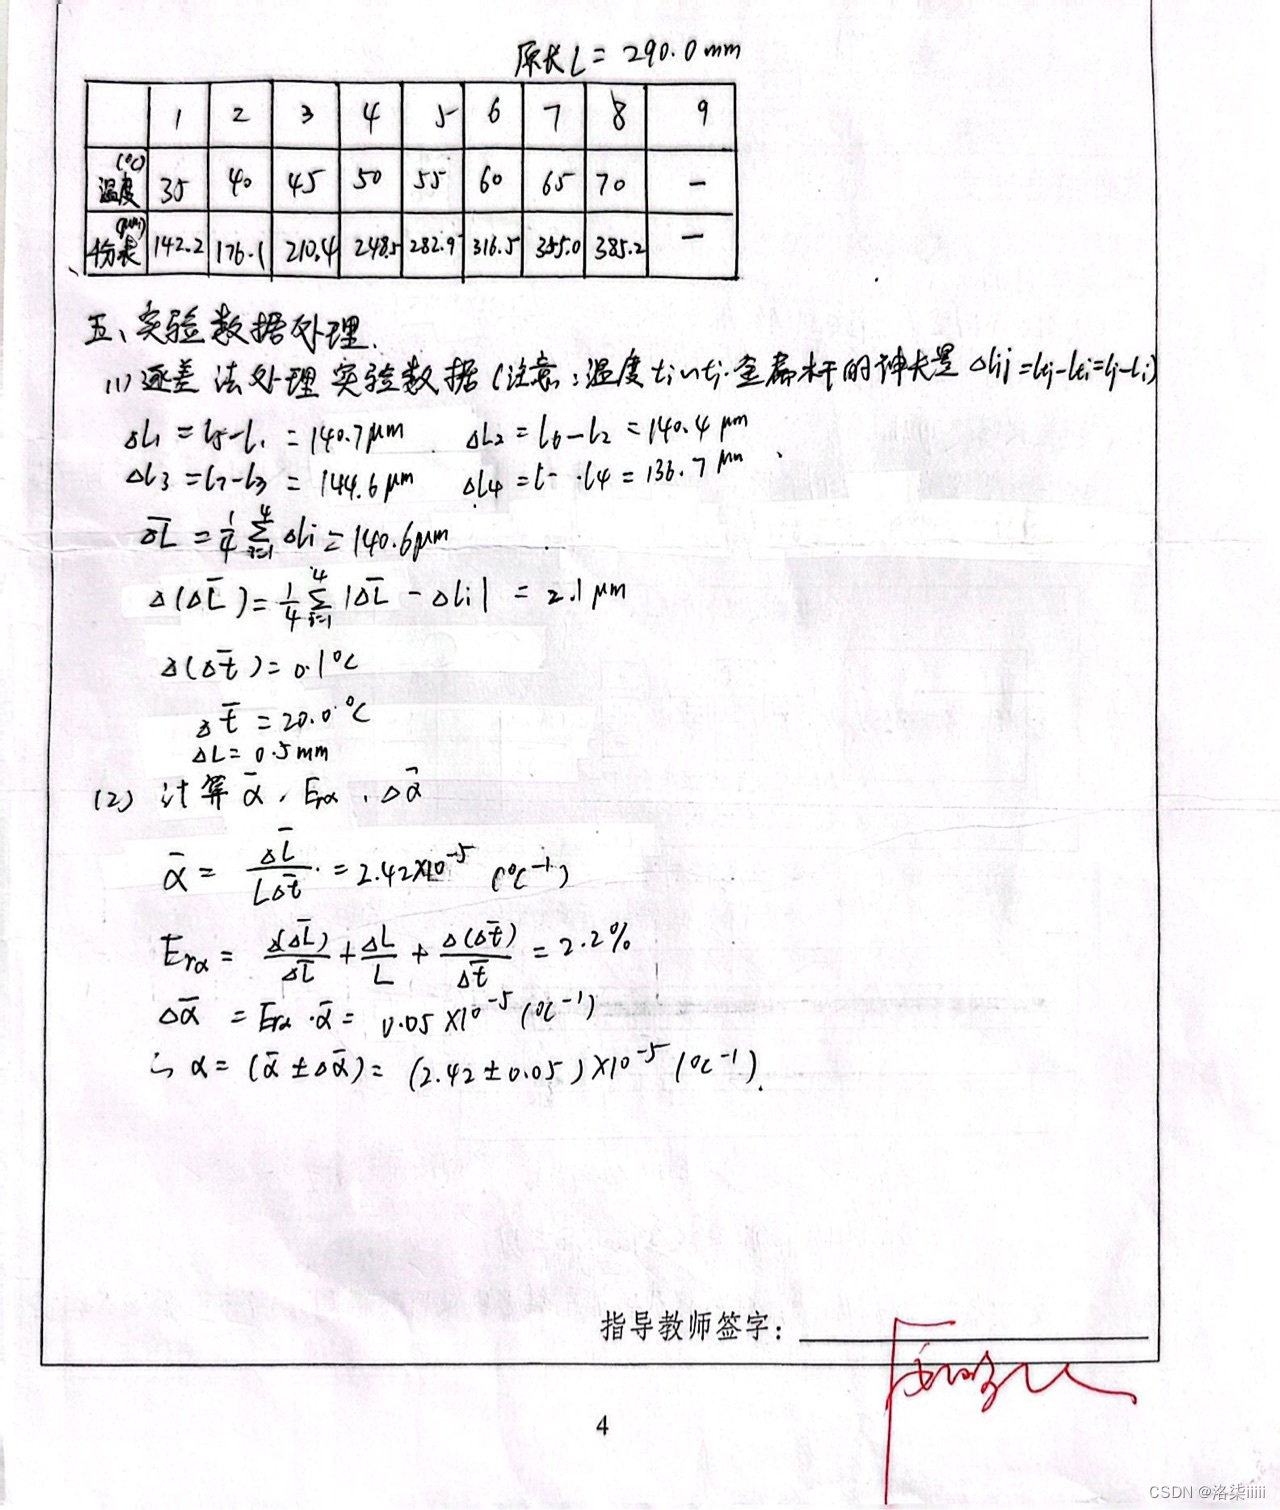 原长L = 290.0mm
1 2 3 4 5 6 7 8 9
温度(℃) 35 40 45 50 55 60 65 70 —
千分表(μm) 142.2 176.1 210.4 248.5 282.9 316.5 355.0 385.2 —
五、实验数据处理.
(1) 逐差法处理实验数据(注意:温度ti~tj.金属杆的伸长量 ΔLij=Ltj-Lti=Lj-Li)
ΔL1 = L5-L1 = 140.7μm ΔL2 = L6-L2 = 140.4μm
ΔL3 = L7-L3 = 144.6μm ΔL4 = L - L4 = 136.7μm
ΔL̄ = 1/4 Σ(i=1→4) ΔLi = 140.6μm
Δ(ΔL̄) = 1/4 Σ(i=1→4) |ΔL̄ - ΔLi| = 2.1μm
Δ(Δt̄) = 0.1℃
Δt̄ = 20.0℃
ΔL = 0.5mm
(2) 计算ᾱ、Erα、Δᾱ
ᾱ = ΔL̄/(LΔt̄) = 2.42×10⁻⁵ (℃⁻¹)
Erα = Δ(ΔL̄)/ΔL̄ + ΔL/L + Δ(Δt̄)/Δt̄ = 2.2%
Δᾱ = Erα·ᾱ = 0.05×10⁻⁵ (℃⁻¹)
∴ α = (ᾱ±Δᾱ) = (2.42±0.05)×10⁻⁵ (℃⁻¹).
指导教师签字:
4
CSDN @洛柒iiiii